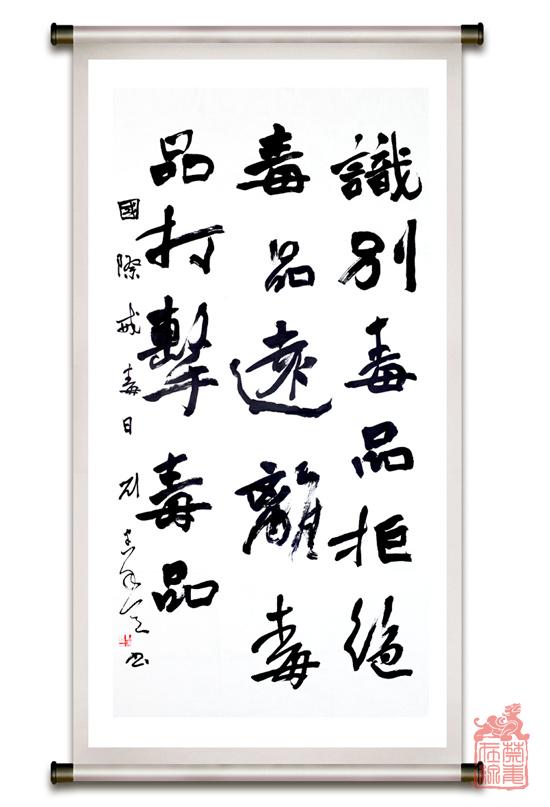 識別毒品拒絕
毒品遠離毒
品打擊毒品
國際戒毒日
书
禁毒在線